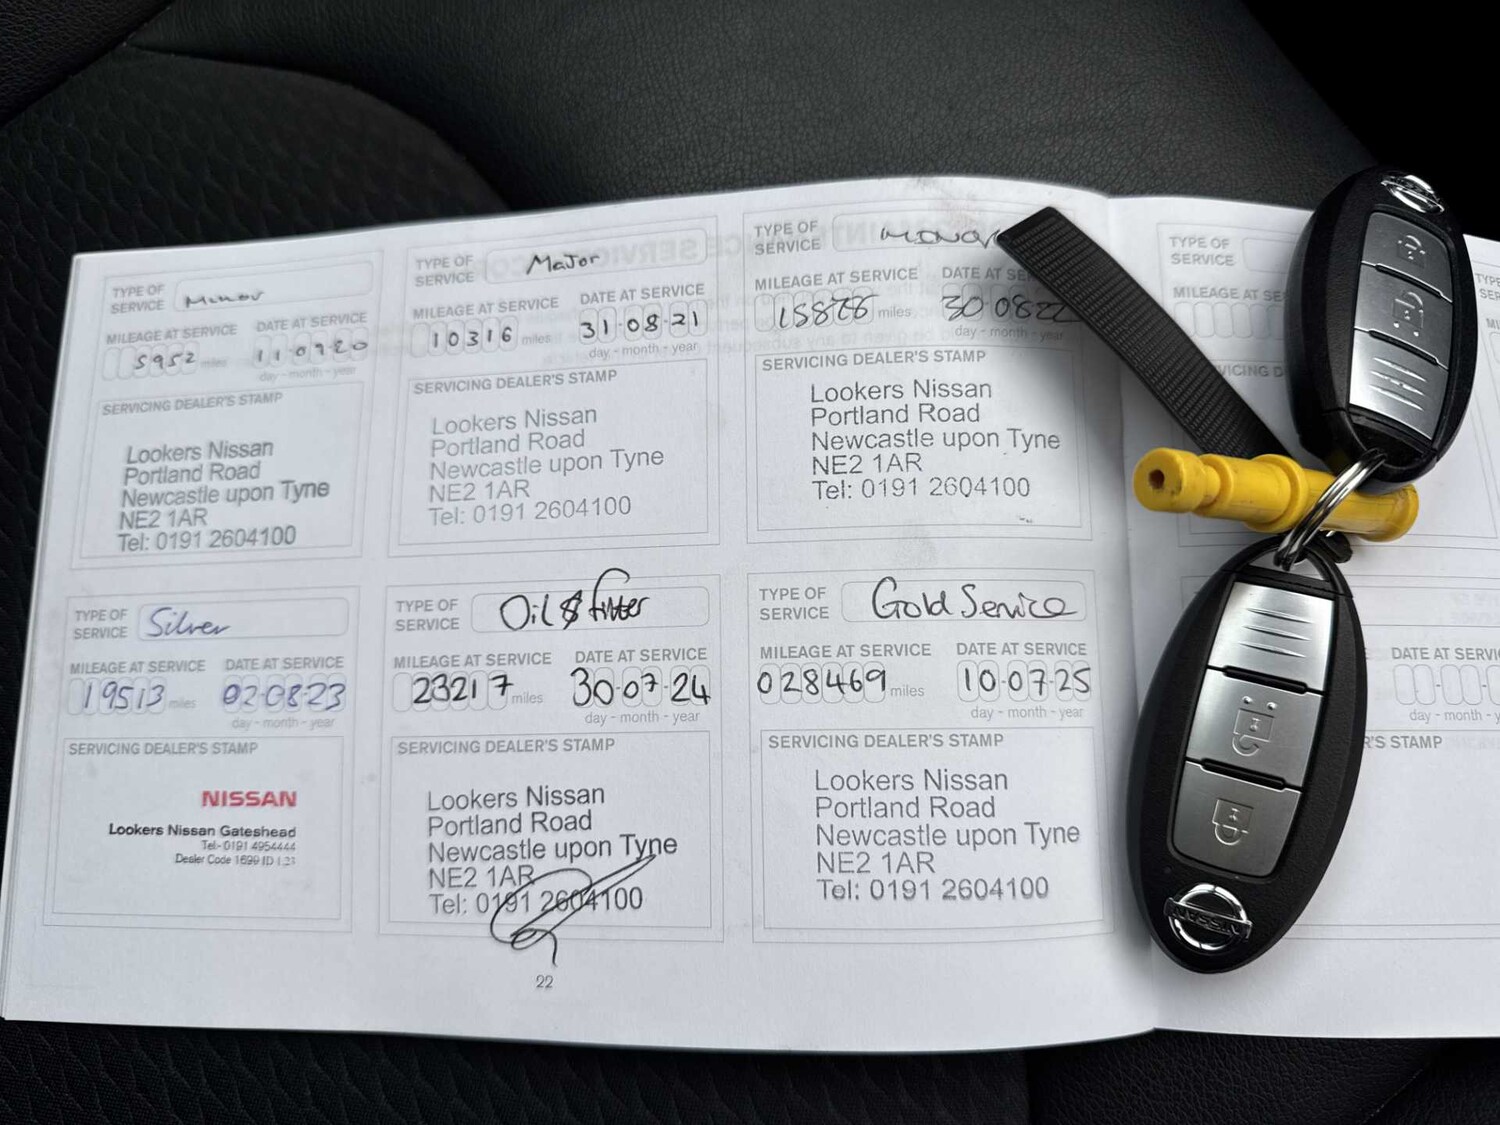 TYPE OF
SERVICE
Minor
MILEAGE AT SERVICE
DATE AT SERVICE
5952 miles
11-09-20
day - month - year
SERVICING DEALER'S STAMP
Lookers Nissan
Portland Road
Newcastle upon Tyne
NE2 1AR
Tel: 0191 2604100
TYPE OF
SERVICE
Major
MILEAGE AT SERVICE
DATE AT SERVICE
10316 miles
31-08-21
day - month - year
SERVICING DEALER'S STAMP
Lookers Nissan
Portland Road
Newcastle upon Tyne
NE2 1AR
Tel: 0191 2604100
TYPE OF
SERVICE
MINOR
MILEAGE AT SERVICE
DATE AT SE
miles
30-08-22
day - month - year
SERVICING DEALER'S STAMP
Lookers Nissan
Portland Road
Newcastle upon Tyne
NE2 1AR
Tel: 0191 2604100
TYPE OF
SERVICE
MILEAGE AT SE
TYPE OF
SERVICE
Silver
MILEAGE AT SERVICE
DATE AT SERVICE
19513 miles
02-08-23
day - month - year
SERVICING DEALER'S STAMP
NISSAN
Lookers Nissan Gateshead
Tel:- 0191 4954444
Dealer Code 1699 ID 1.23
TYPE OF
SERVICE
Oil & filter
MILEAGE AT SERVICE
DATE AT SERVICE
23217 miles
30-07-24
day - month - year
SERVICING DEALER'S STAMP
Lookers Nissan
Portland Road
Newcastle upon Tyne
NE2 1AR
Tel: 0191 2604100
TYPE OF
SERVICE
Gold Service
MILEAGE AT SERVICE
DATE AT SERVICE
028469 miles
10-07-25
day - month - year
SERVICING DEALER'S STAMP
Lookers Nissan
Portland Road
Newcastle upon Tyne
NE2 1AR
Tel: 0191 2604100
DATE AT SERVI
day - month - y
R'S STAMP
22
NISSAN